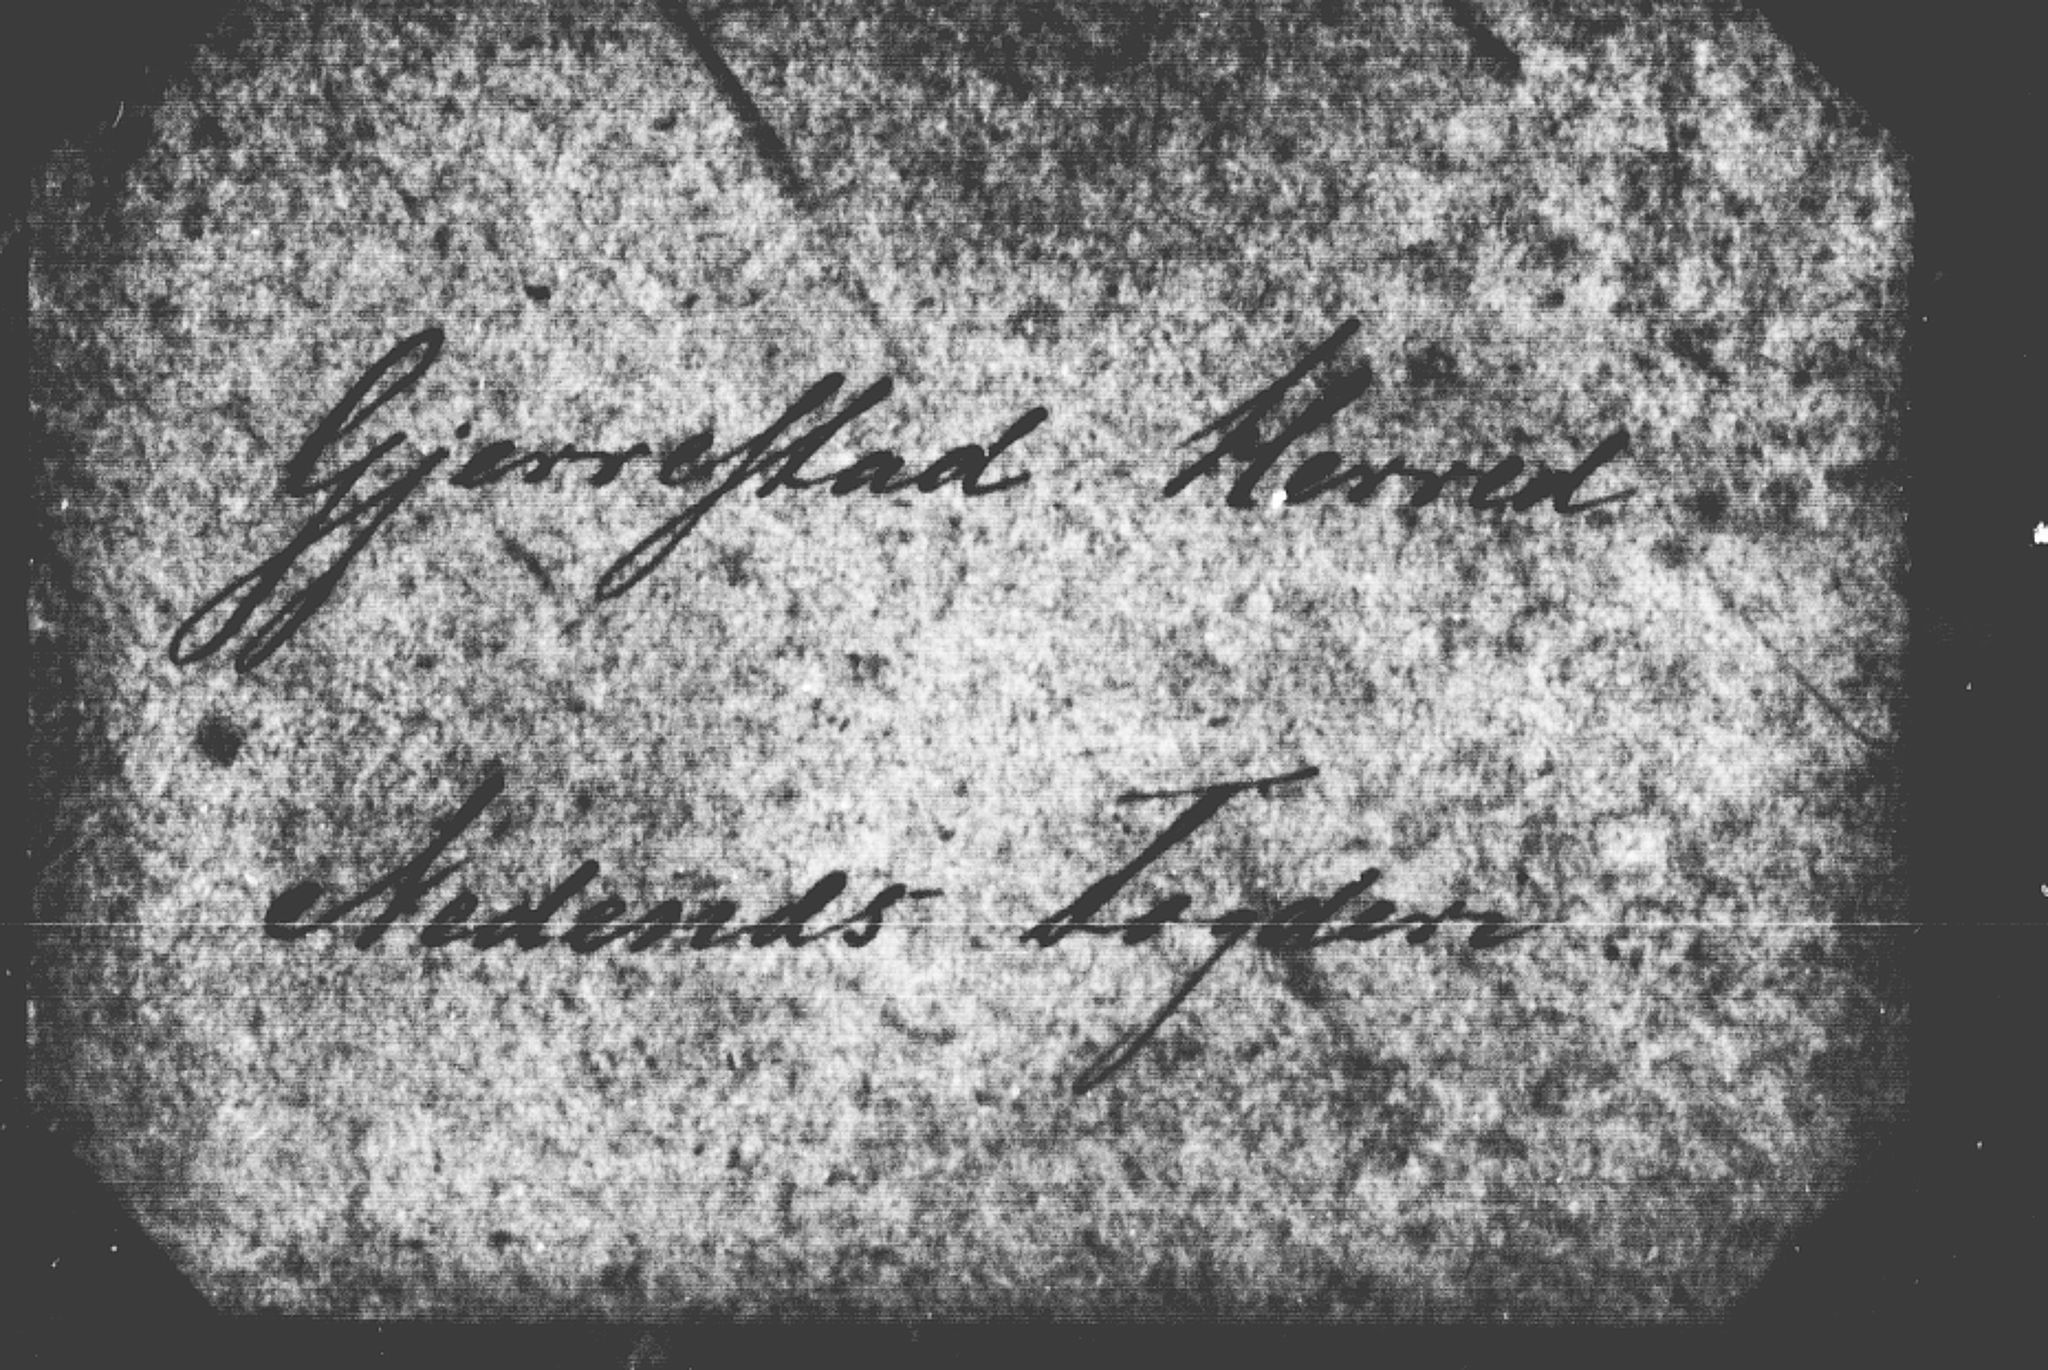 Gjerrestad Herred
Nedenæs Fogderi